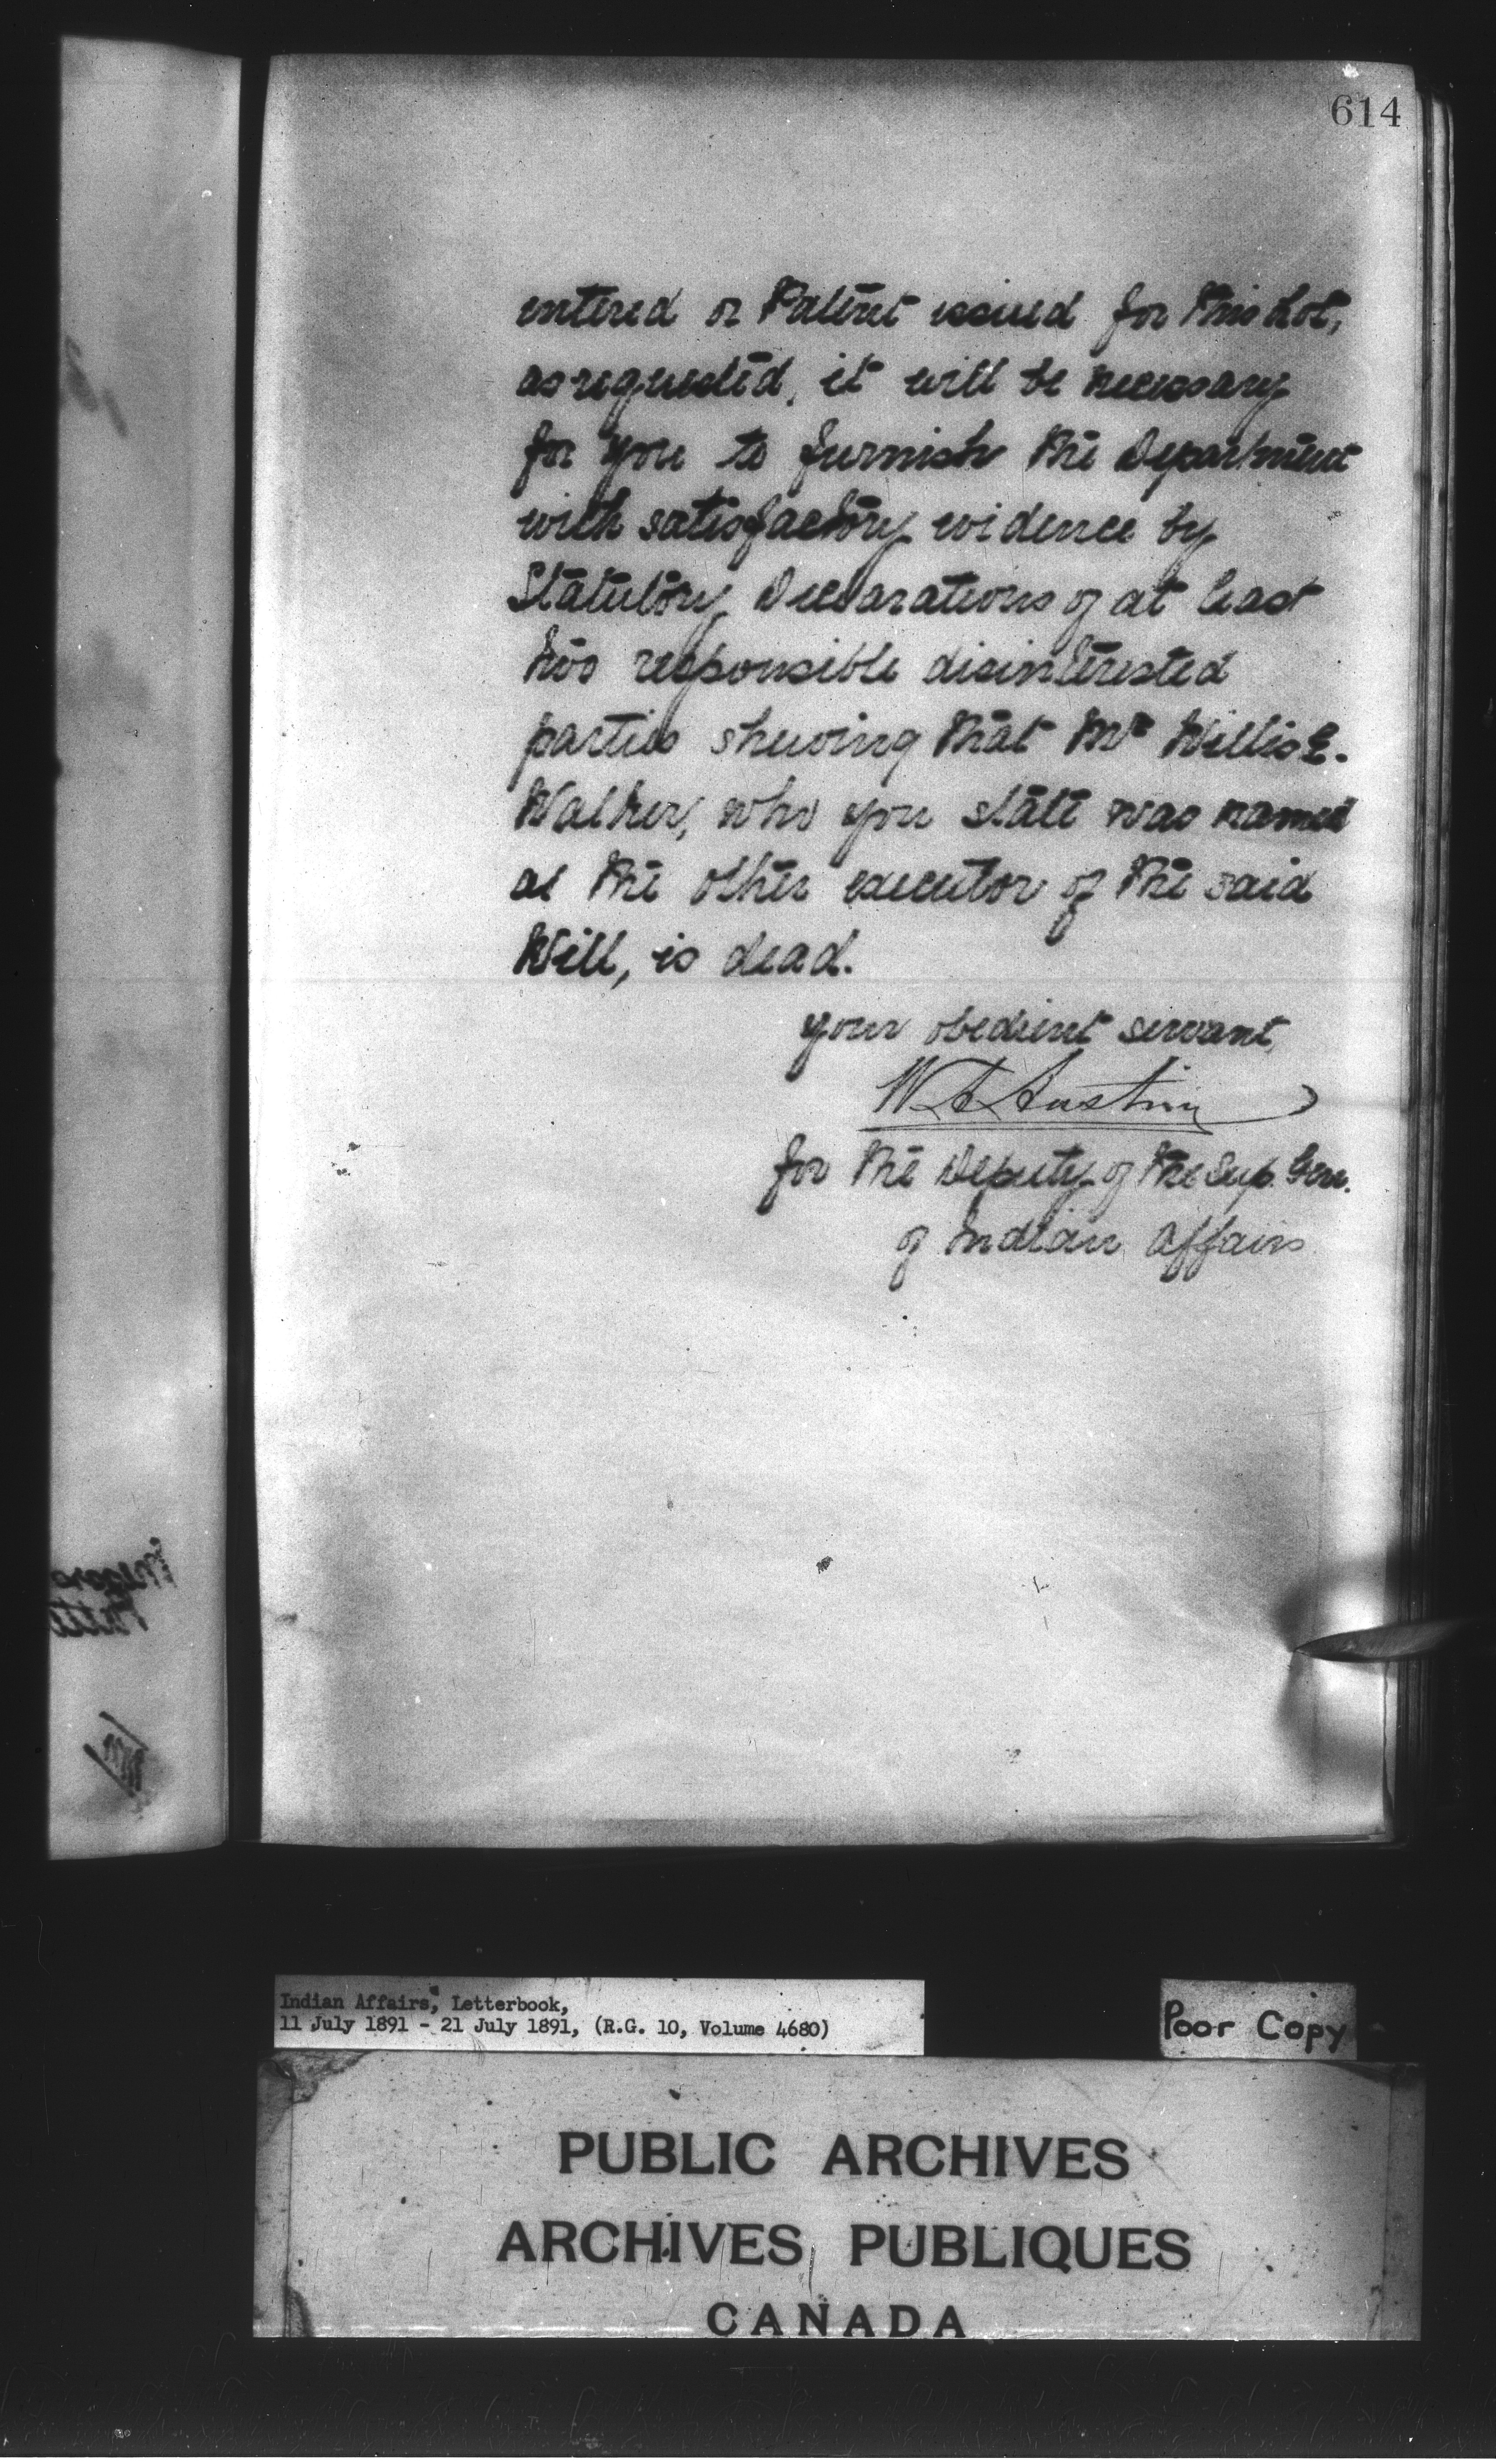 614
entered or Patent issued for this Lot,
as requested, it will be necessary
for you to furnish the Department
with satisfactory evidence by
Statutory Declarations of at least
two responsible disinterested
parties shewing that Mr Willis E.
Walker, who you state was named
as the other executor of the said
Will, is dead.
your obedient servant,
W A Austin
for the Deputy of the Sup. Gen.
of Indian Affairs
Indian Affairs, Letterbook,
11 July 1891 - 21 July 1891, (R.G. 10, Volume 4680)
Poor Copy
PUBLIC ARCHIVES
ARCHIVES PUBLIQUES
CANADA